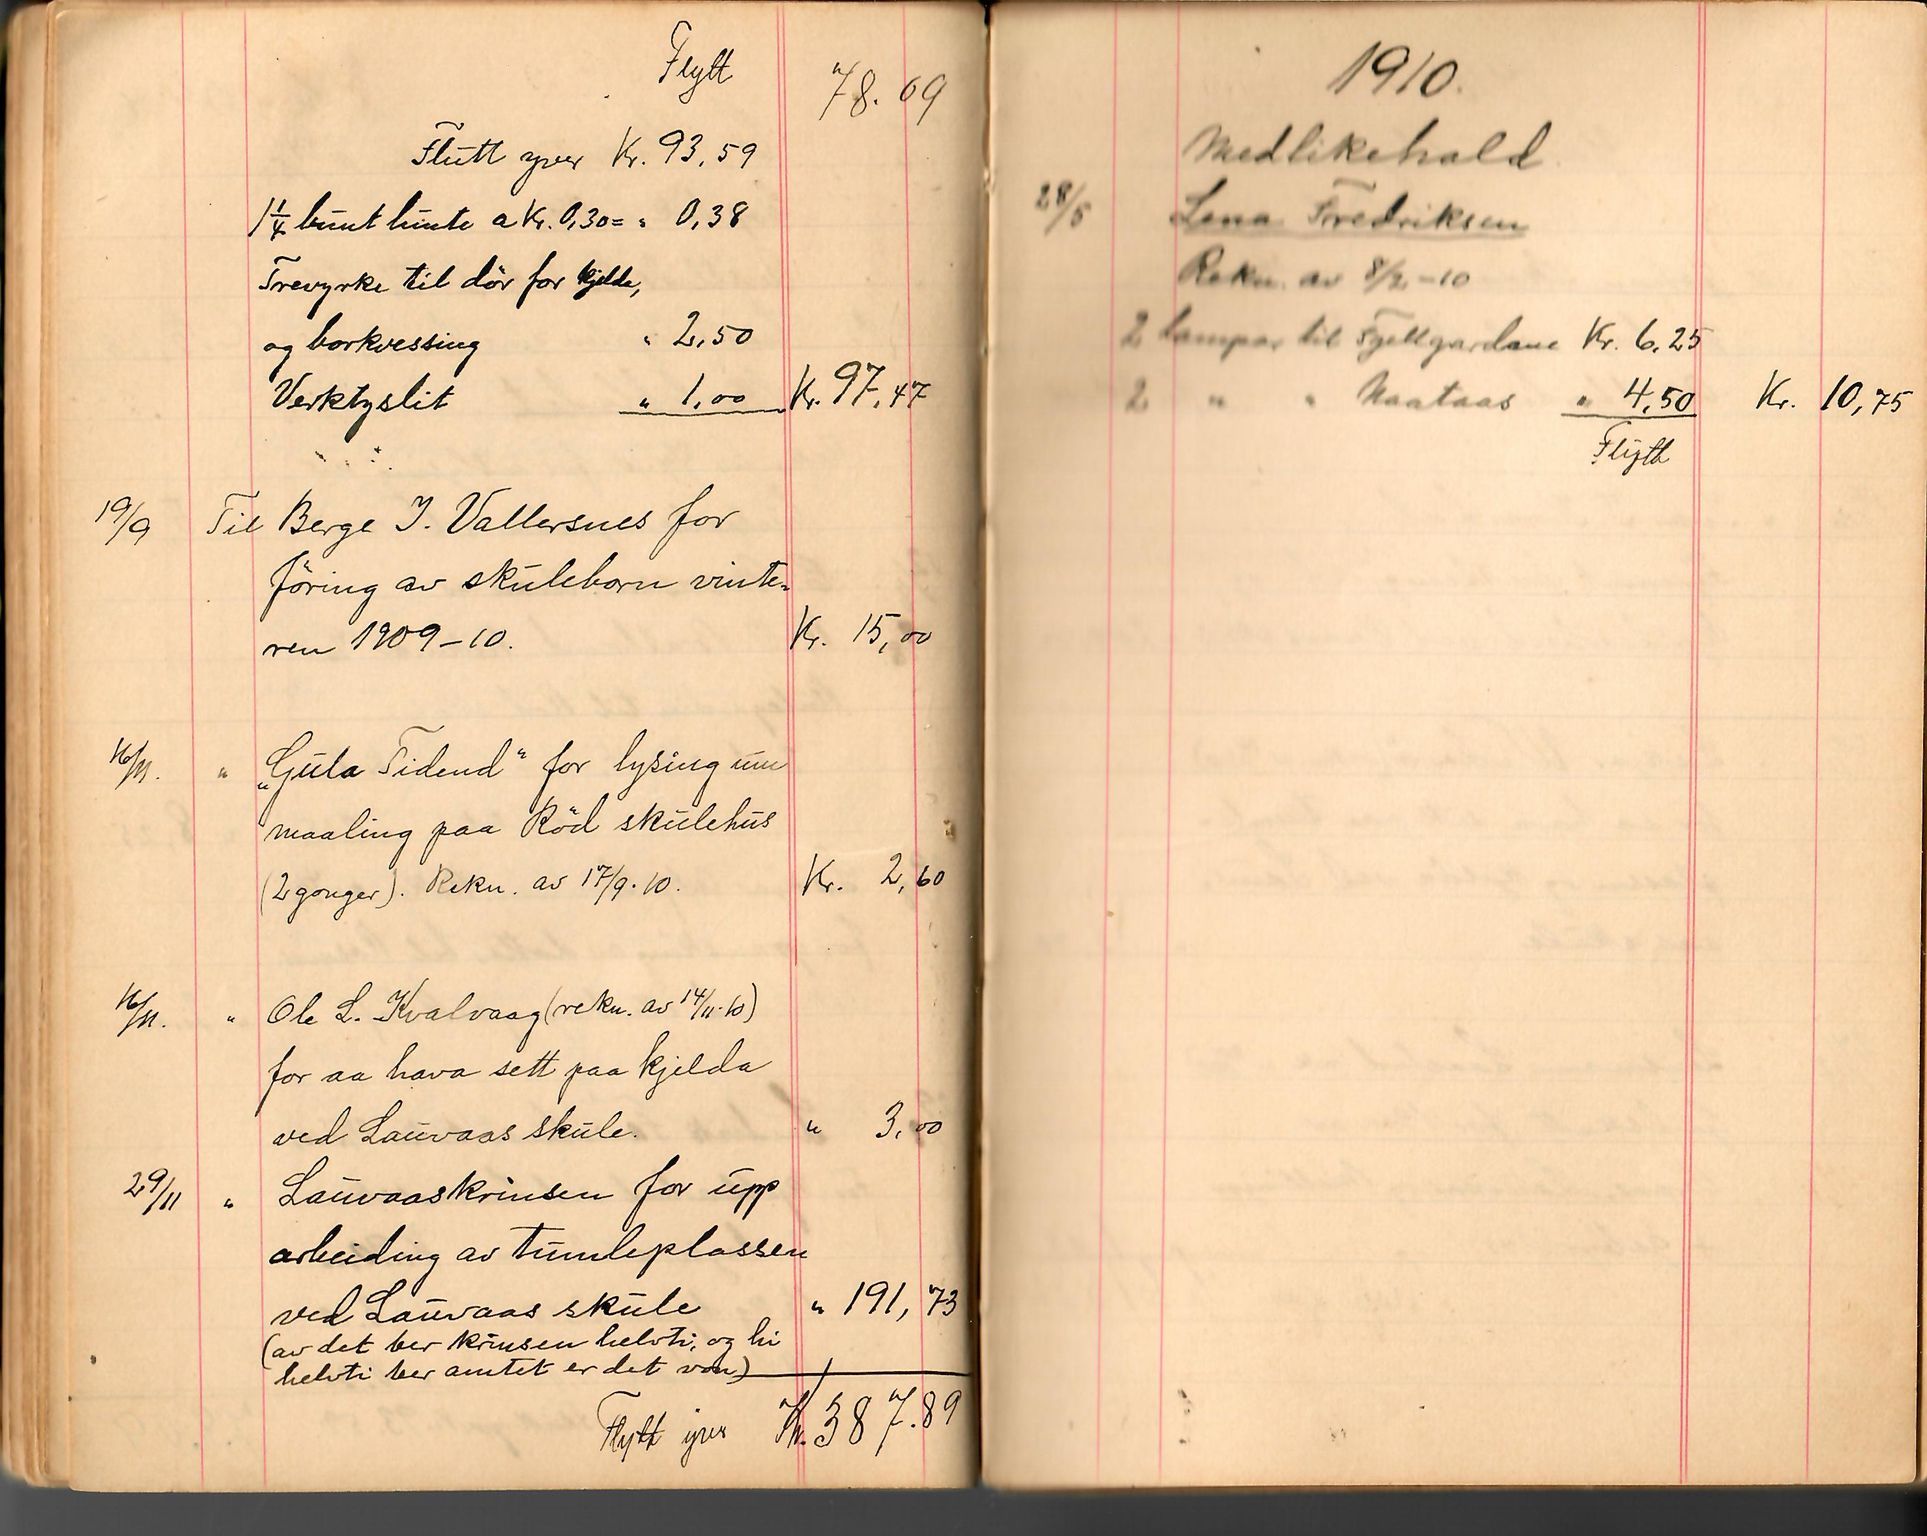 Flytt 78.09
Flutt yver Kr. 93,59
1 1/4 bunt lunte a Kr. 0,30 = " 0,38
Trevyrke til dör for kjelda,
og borkvessing " 2,50
Verktyslit " 1,00 Kr. 97,47
19/9 Til Berge J. Vallersnes for
föring av skuleborn vinte-
ren 1909-10. Kr. 15,00
16/11. " „Gula Tidend" for lysing um
maaling paa Röd skulehus
(2 gonger). Rekn. av 17/9.10. Kr. 2,60
16/11. " Ole L. Kvalvaag (rekn. av 14/11.10)
for aa hava sett paa kjelda
ved Lauvaas skule. " 3,00
29/11 " Lauvaaskrinsen for upp
arbeiding av tumleplassen
ved Lauvaas skule " 191,73
(av det ber krinsen helvti, og hi
helvti ber amtet er det von)
Flytt yver Kr. 387.89
1910.
Medlikehald
28/5 Lena Fredriksen
Rekn. av 8/2-10
2 lampar til Fjellgardane Kr. 6,25
2 " " Naataas " 4,50 Kr. 10,75
Flytt